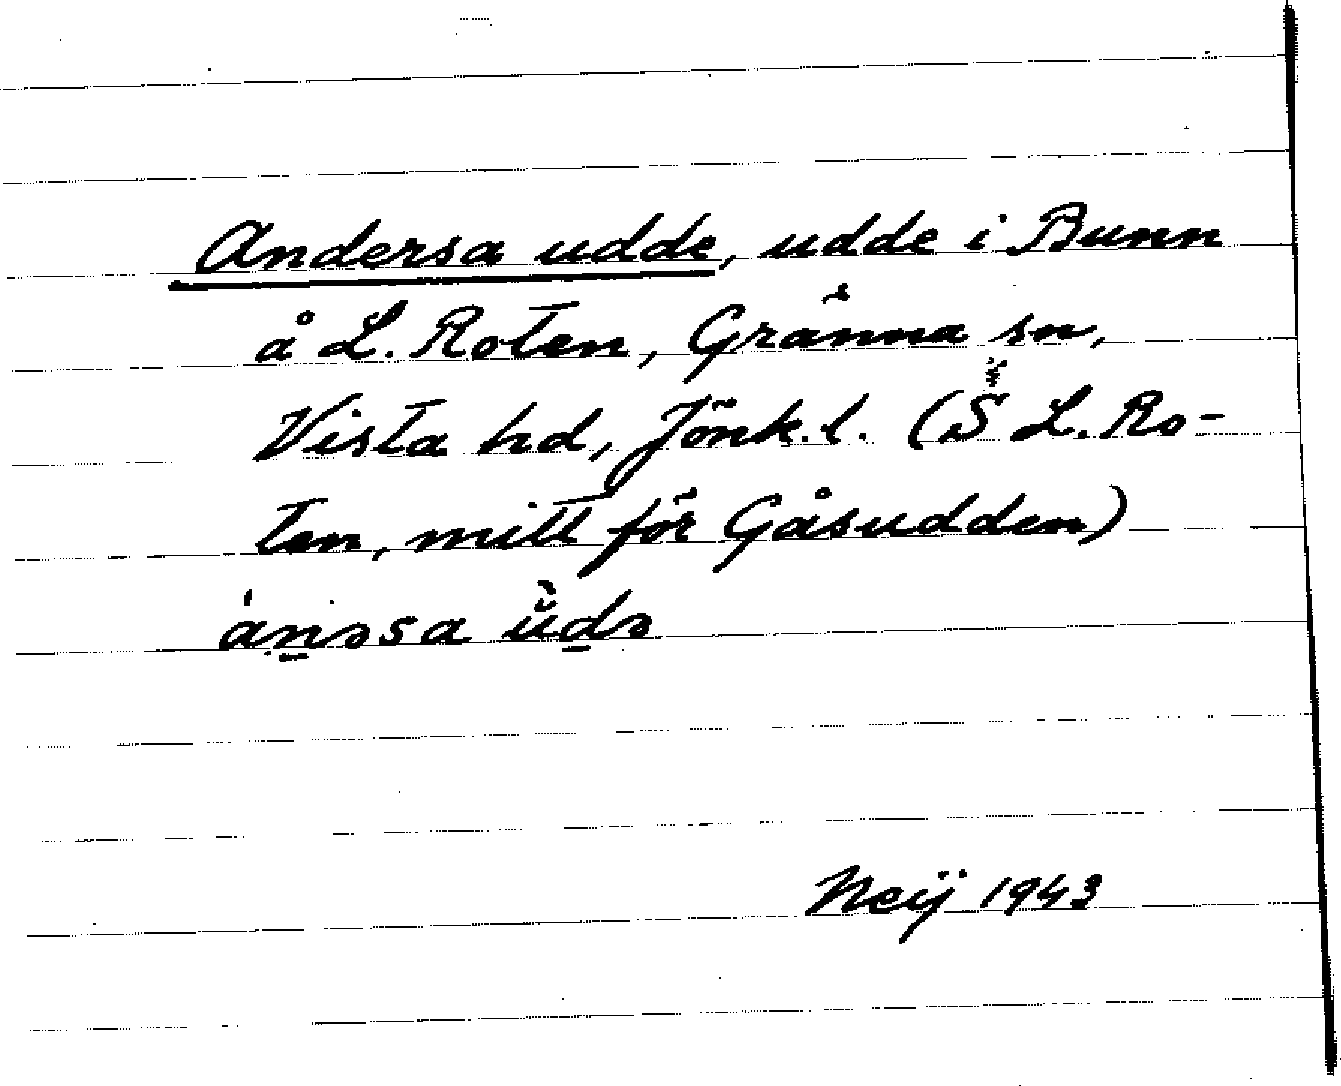 Andersa udde, udde i Bunn
å L. Roten, Gränna sn,
Vista hd, Jönk. l. (S L. Ro-
ten, mitt för Gåsudden)
Neij 1943